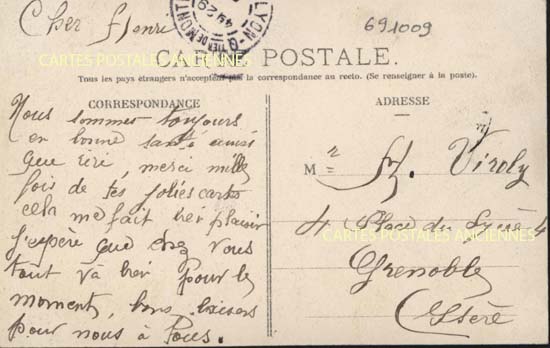 Cher Henri
691009
CARTE POSTALE.
Tous les pays étrangers n'acceptent pas la correspondance au recto. (Se renseigner à la poste).
CARTES POSTALES ANCIENNES
CORRESPONDANCE
Nous sommes toujours
en bonne santé aussi
que Riri, merci mille
fois de tes jolies cartes
cela me fait bien plaisir
j'espère que chez vous
tout va bien pour le
moment, bons baisers
pour nous à tous.
ADRESSE
M r H. Viroly
4 Place du Lycée 4
CARTES POSTALES ANCIENNES
Grenoble
Isère
LYON